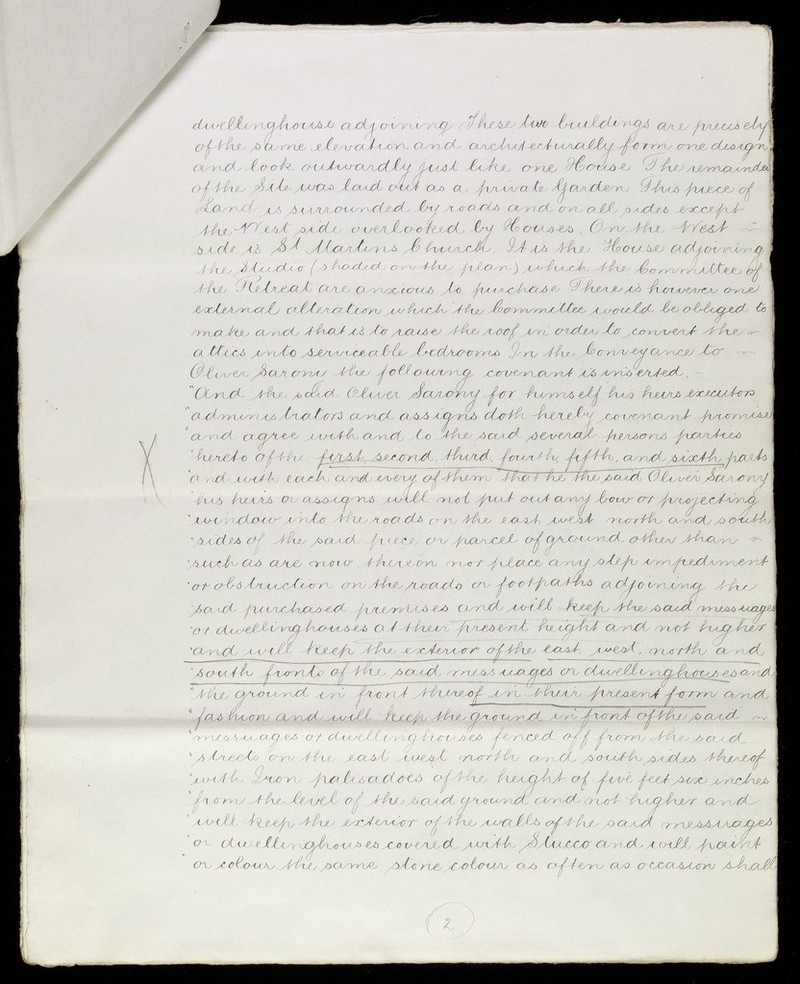 dwellinghouse adjoining These two buildings are precisely
of the same elevation and architecturally form one design
and look outwardly just like one House The remainder
of the Site was laid out as a private Garden This piece of
Land is surrounded by roads and on all sides except
the West side overlooked by Houses. On the West -
side is St Martins Church. It is the House adjoining
the Studio (shaded on the plan) which the Committee of
the Retreat are anxious to purchase There is however one
external alteration which the Committee would be obliged to
make and that is to raise the roof in order to convert the -
attics into serviceable bedrooms In the Conveyance to -
Oliver Sarony the following covenant is inserted. -
"And the said Oliver Sarony for himself his heirs executors
"administrators and assigns doth hereby covenant promise
"and agree with and to the said several persons parties
"hereto of the first, second third, fourth, fifth, and sixth parts
"and with each and every of them that he the said Oliver Sarony
"his heirs or assigns will not put out any bow or projecting
"window into the roads on the east west north and south
"sides of the said piece or parcel of ground other than -
"such as are now thereon nor place any step impediment
"or obstruction on the roads or footpaths adjoining the
"said purchased premises and will keep the said messuages
"or dwellinghouses at their present height and not higher
"and will keep the exterior of the east, west, north and
"south fronts of the said messuages or dwellinghouses and
"the ground in front thereof in their present form and
"fashion and will keep the ground in front of the said -
"messuages or dwellinghouses fenced off from the said
"streets on the east west north and south sides thereof
"with Iron palisadoes of the height of five feet six inches
"from the level of the said ground and not higher and
"will keep the exterior of the walls of the said messuages
"or dwellinghouses covered with Stucco and will paint
"or colour the same stone colour as often as occasion shall
X
2